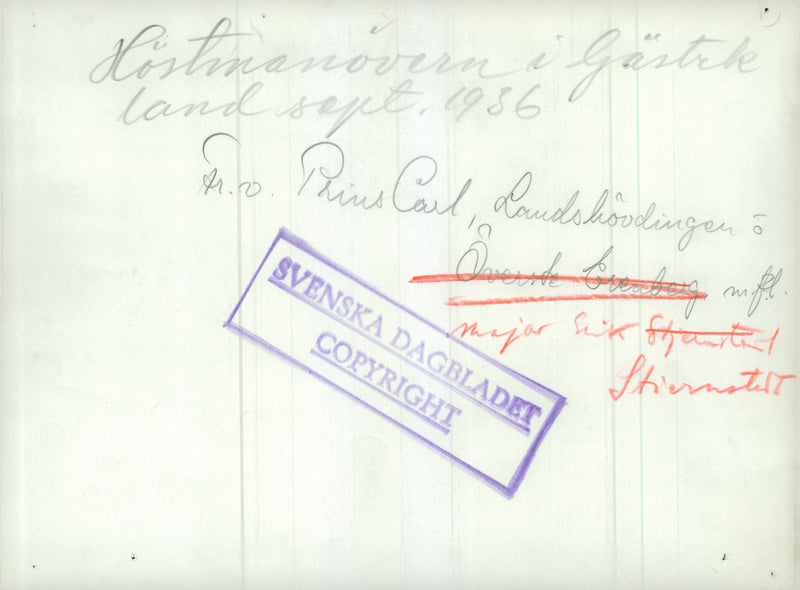 Höstmanövern i Gästrk
land sept. 1936
Fr. v. Prins Carl, Landshövdingen o
Överste Erenberg, m.fl.
major Erik Stjernstedt
Stiernstedt
SVENSKA DAGBLADET
COPYRIGHT